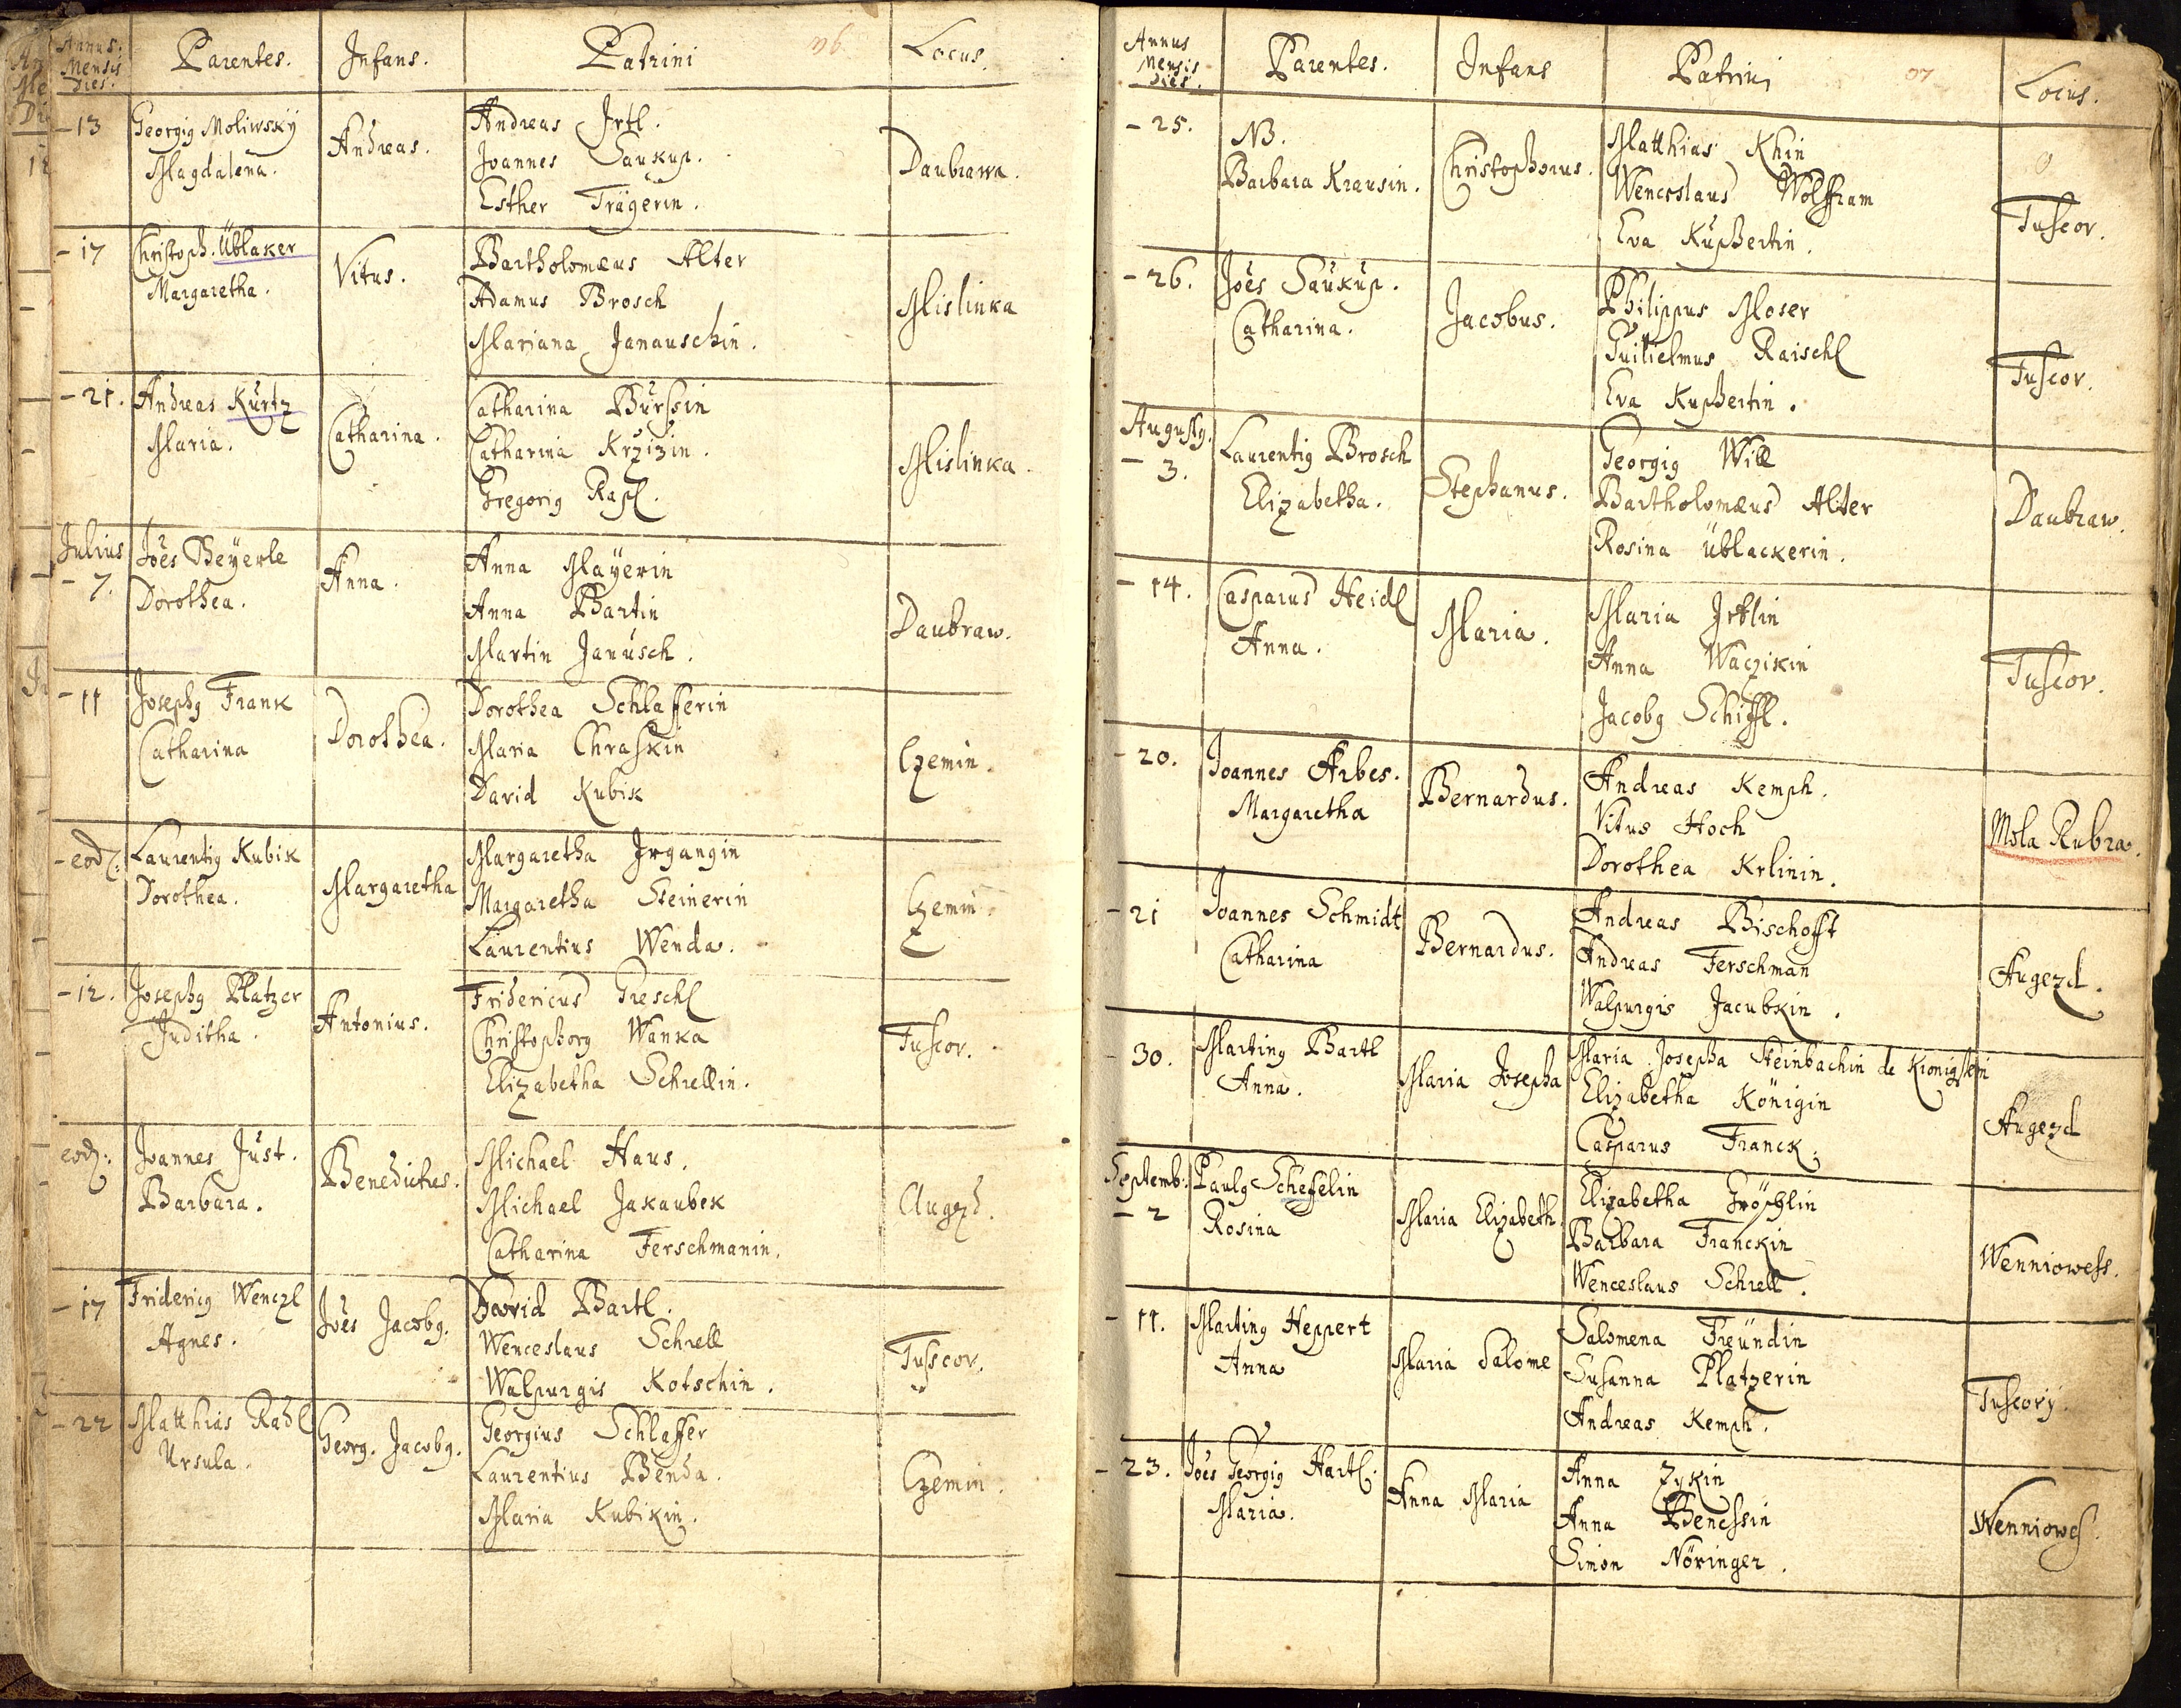 Annus. Mensis Dies. Parentes. Infans. Patrini 96 Locus.
- 13 Georgig Moliwsky Andreas. Andreas Irtl. Daubrawa.
Magdalena. Joannes Saukup.
Esther Trägerin.
- 17 Christoph. Üblaker Vitus. Bartholomæus Alter Mislinka
Margaretha. Adamus Brosch
Mariana Janauschin.
- 21. Andreas Kurtz Catharina. Catharina Bürssin Mislinka.
Maria. Catharina Krzizin.
Gregorig Rapl.
Julius
- 7. Joes Beyerle Anna. Anna Mayerin Daubraw.
Dorothea. Anna Bartin
Martin Janusch.
- 11 Josephg Frank Dorothea. Dorothea Schlafferin Czemin.
Catharina Maria Chraskin
David Kubik
- eod: Laurentig Kubik Margaretha Margaretha Irgangin Czemin.
Dorothea. Margaretha Steinerin
Laurentius Wenda.
- 12. Josephg Platzer Antonius. Fridericus Greschl Tuscov.
Juditha. Christophorg Wanka
Elizabetha Schrellin.
eod: Joannes Just. Benedictus. Michael Haus. Augezd.
Barbara. Michael Jakaubek
Catharina Ferschmanin.
- 17 Fridericg Wenczl Joes Jacobg. David Bartl. Tuscov.
Agnes. Wenceslaus Schrell
Walpurgis Kotschin.
- 22 Matthias Radl Georg. Jacobg. Georgius Schlaffer Czemin.
Ursula. Laurentius Benda.
Maria Kubikin.
Annus Mensis Dies. Parentes. Infans Patrini 97 Locus.
- 25. NB. Christophorus. Matthias Khin Tuscov.
Barbara Krausin. Wenceslaus Wolffram
Eva Kuphertin.
- 26. Joes Saukup. Jacobus. Philippus Moser Tuscov.
Catharina. Guilielmus Raischl
Eva Kuphertin.
Augustg.
- 3. Laurentig Brosch Stephanus. Georgig Will Daubraw.
Elizabetha. Bartholomæus Alter
Rosina Üblackerin.
- 14. Casparus Heidl Maria. Maria Irtlin Tuscov.
Anna. Anna Waczikin
Jacobg Schiffl.
- 20. Joannes Arbes. Bernardus. Andreas Kemph. Mola Rubra.
Margaretha Vitus Hoch
Dorothea Krlinin.
- 21 Joannes Schmidt Bernardus. Andreas Bischofft Augezd.
Catharina Andreas Ferschman
Walpurgis Jacubkin.
30. Marting Bartl Maria Josepha Maria Josepha Steinbachin de Kronigstein Augezd
Anna. Elizabetha Königin
Casparus Franck.
Septemb:
- 2 Paulg Scheffelin Maria Elizabeth. Elizabetha Gröschlin Wenniowess.
Rosina Barbara Franckin
Wenceslaus Schrell.
- 11. Marting Heppert Maria Salome Salomena Freündin Tuscovy.
Anna Susanna Platzerin
Andreas Kemph.
- 23. Joes Georgig Hartl. Anna Maria Anna Zykin Wenniowes.
Maria. Anna Benessin
Simon Nöringer.